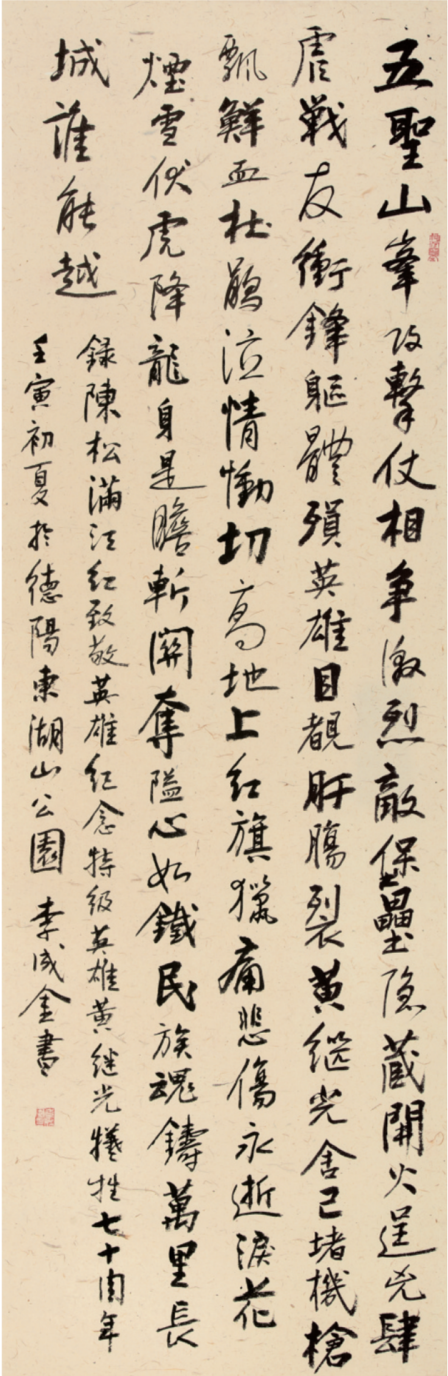 五聖山峯攻擊仗相争激烈敵保壘隐蔵開火逞兇肆
虐戦友衝鋒躯體殞英雄目覩肝腸裂黄继光舍己堵機槍
飄鮮血杜鵑泣情慟切高地上红旗獵痛悲傷永逝淚花
煙雪伏虎降龍身是膽斬關奪隘心如鐵民族魂鑄萬里長
城誰能越
録陳松满江红致敬英雄纪念特级英雄黄继光犧牲七十周年
壬寅初夏於德陽東湖山公園 李成金書